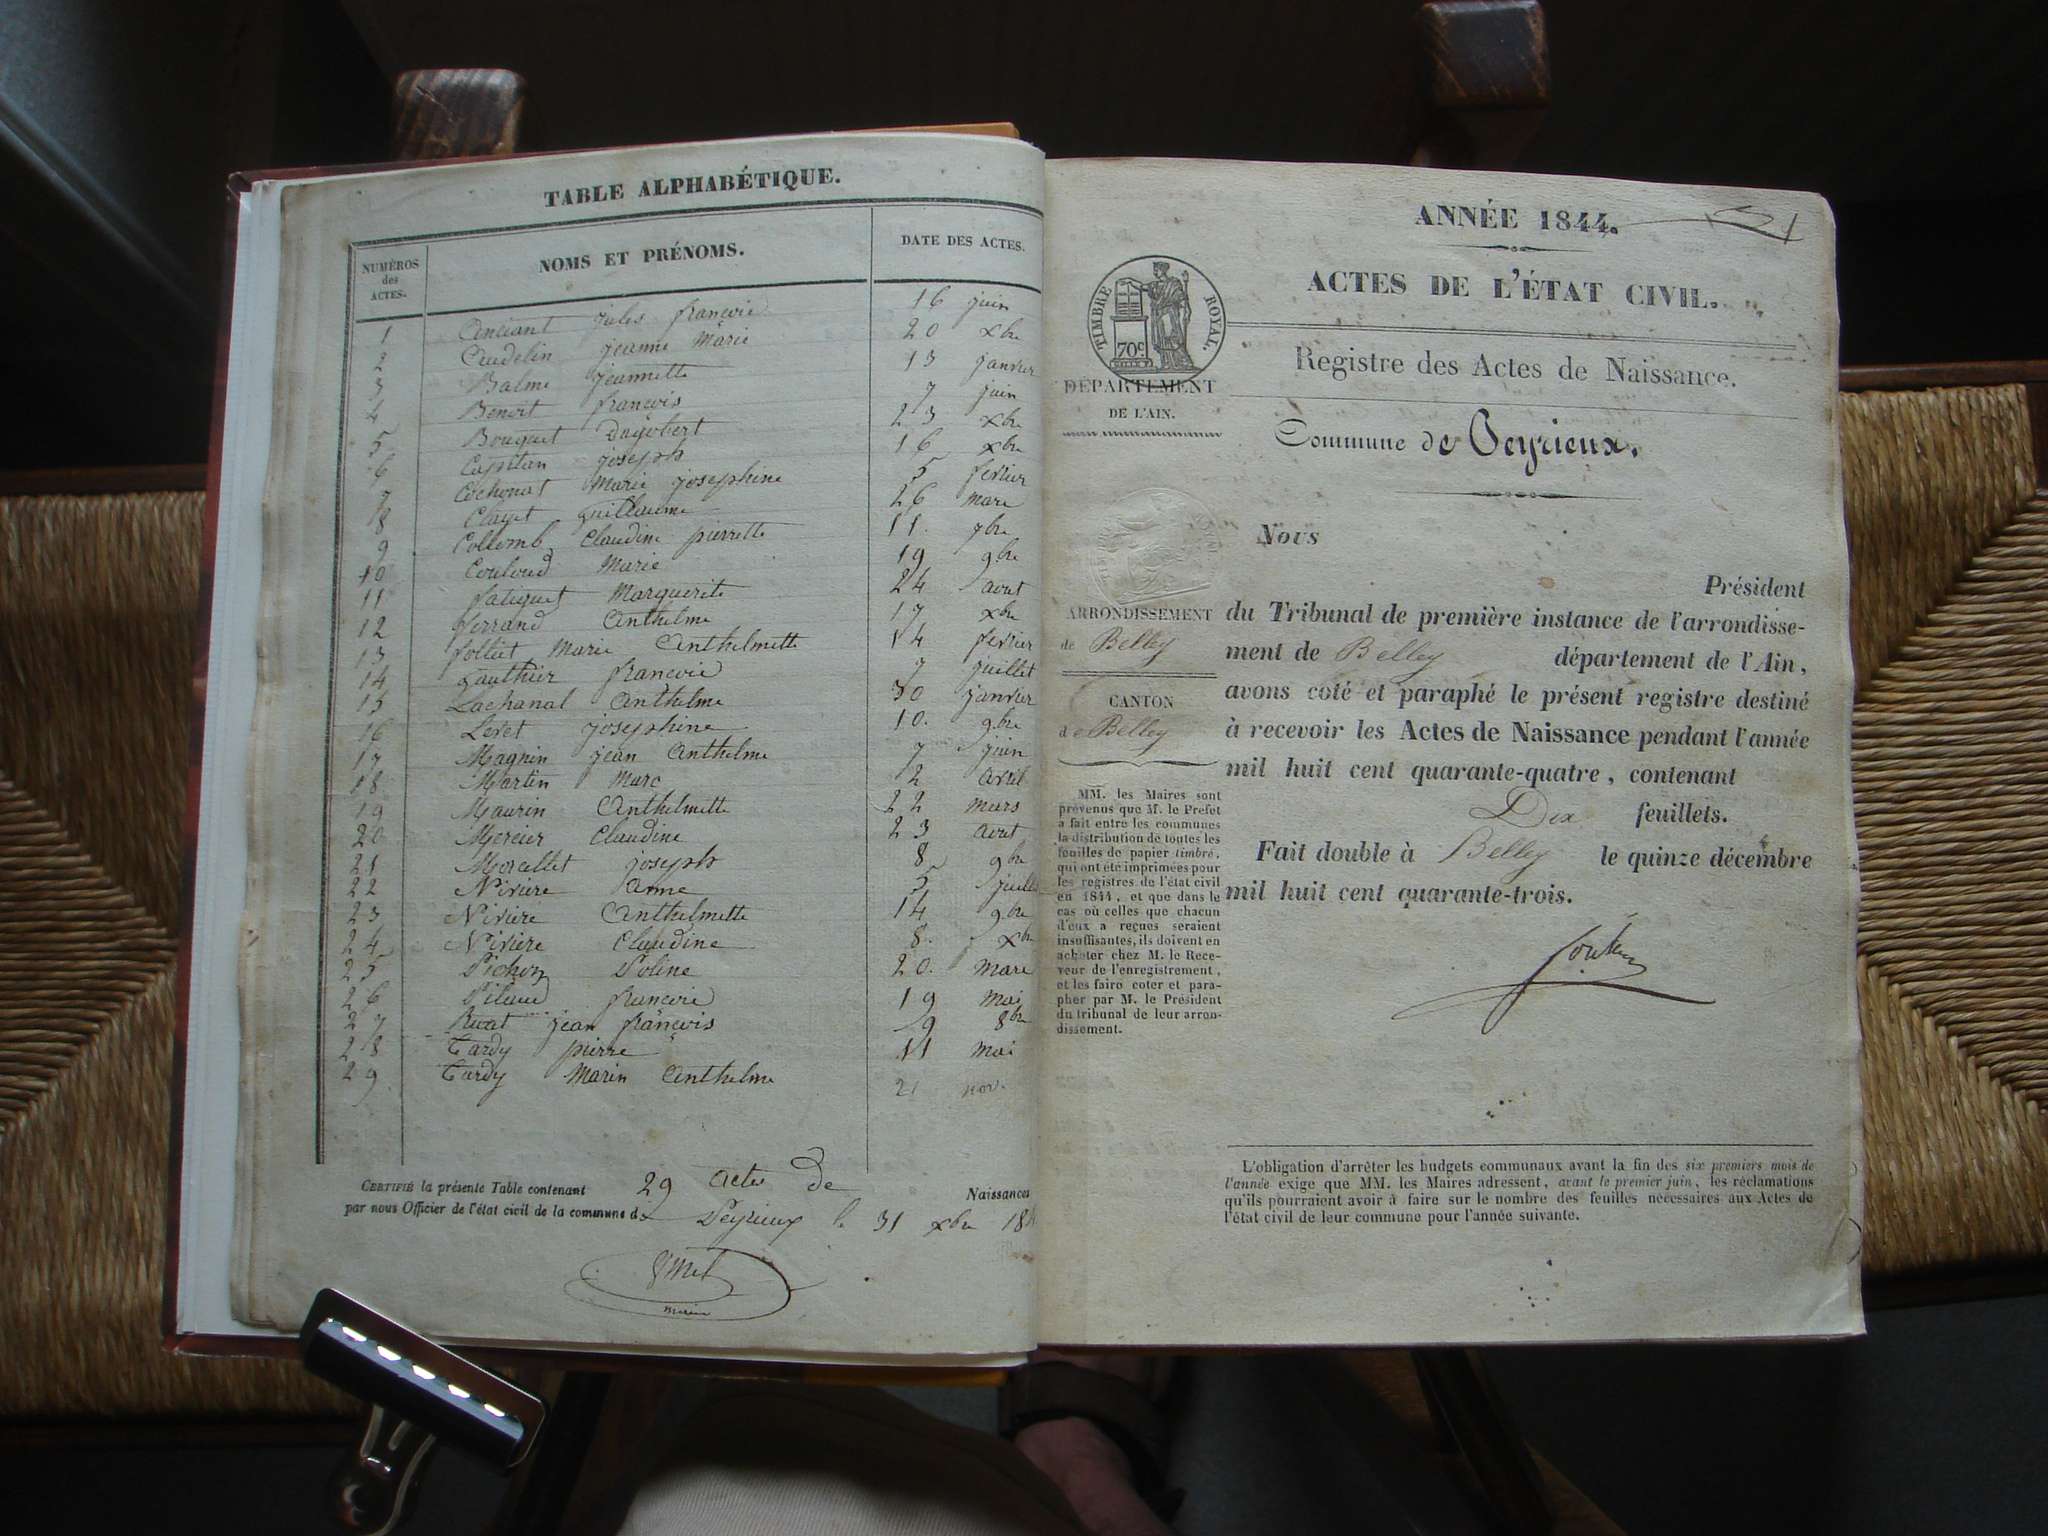 TABLE ALPHABÉTIQUE.
NUMÉROS des ACTES. NOMS ET PRÉNOMS. DATE DES ACTES.
1 Anciant jules francois 16 juin
2 Audelin jeanne Marie 20 xbre
3 Balme jeannette 13 janvier
4 Benoit francois 7 juin
5 Bouquet Dagobert 23 xbre
6 Capitan joseph 16 xbre
7 Cochonat Marie josephine 5 fevrier
8 Clayet guillaume 26 mars
9 Collomb Claudine pierrette 11. 7bre
10 Couloud Marie 19 9bre
11 Marguerite 24 aout
12 ferrand Anthelme 17 xbre
13 folliet Marie Anthelmette 14 fevrier
14 gauthier francois 7 juillet
15 Lachanal Anthelme 30 janvier
16 Levet josephine 10. 9bre
17 Magnin jean Anthelme 7 juin
18 Martin Marc 2 avril
19 Maurin Anthelmette 22 mars
20 Mercier Claudine 23 aout
21 Morcellet joseph 8 9bre
22 Nivière anne 5 juill
23 Nivière Anthelmette 14 9bre
24 Nivière Claudine 8. xbre
25 Pichon Poline 20. mars
26 Pilaud francois 19 mai
27 Ruat jean francois 9 8bre
28 Tardy pierre 11 mai
29 Tardy Marin Anthelme 21 nov.
CERTIFIÉ la présente Table contenant 29 actes de Naissances
par nous Officier de l'état civil de la commune de Peyrieux le 31 xbre 184
ANNÉE 1844. 21
ACTES DE L'ÉTAT CIVIL.
TIMBRE ROYAL.
70c
Registre des Actes de Naissance.
DÉPARTEMENT
DE L'AIN.
Commune de Peyrieux.
Nous
Président
du Tribunal de première instance de l'arrondisse-
ment de Belley département de l'Ain,
avons coté et paraphé le présent registre destiné
à recevoir les Actes de Naissance pendant l'année
mil huit cent quarante-quatre, contenant
Dix feuillets.
Fait double à Belley le quinze décembre
mil huit cent quarante-trois.
ARRONDISSEMENT
de Belley
CANTON
de Belley
MM. les Maires sont
prévenus que M. le Préfet
a fait entre les communes
la distribution de toutes les
feuilles de papier timbré,
qui ont été imprimées pour
les registres de l'état civil
en 1844, et que dans le
cas où celles que chacun
d'eux a reçues seraient
insuffisantes, ils doivent en
acheter chez M. le Rece-
veur de l'enregistrement,
et les faire coter et para-
pher par M. le Président
du tribunal de leur arron-
dissement.
L'obligation d'arrêter les budgets communaux avant la fin des six premiers mois de
l'année exige que MM. les Maires adressent, avant le premier juin, les réclamations
qu'ils pourraient avoir à faire sur le nombre des feuilles nécessaires aux Actes de
l'état civil de leur commune pour l'année suivante.